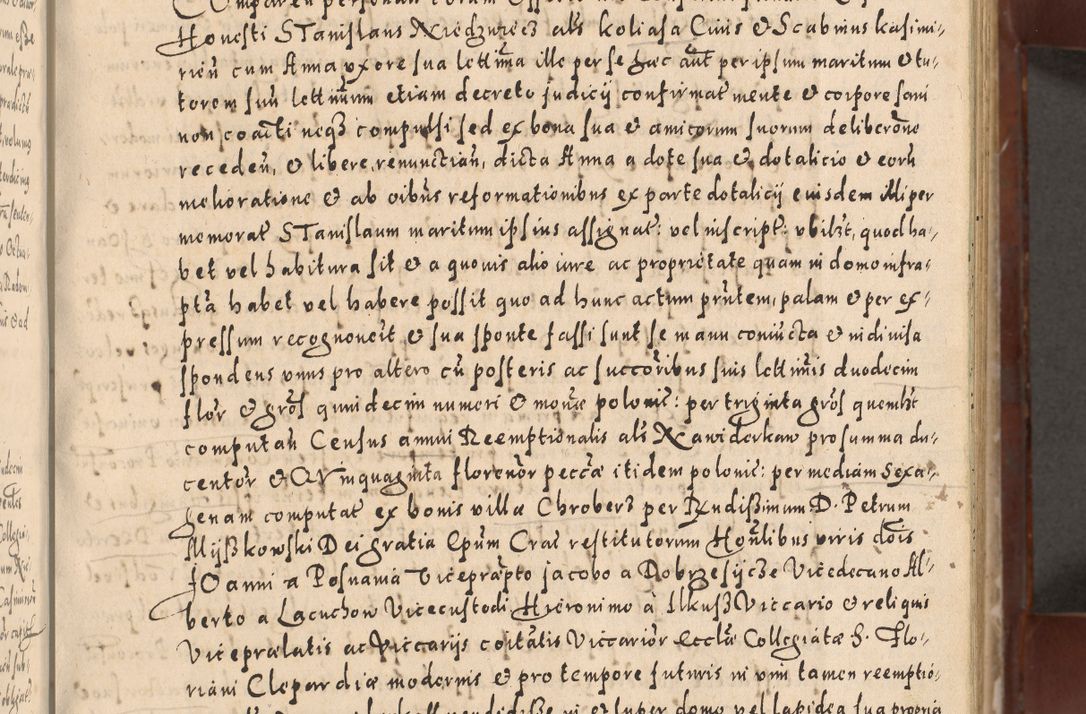 Honesti STanislaus Niedzwiecz als koliasa Ciuis & Scabinus kasimi-
rien cum Anna vxore sua lettima ille per se haec aut per ipsum maritum & tu-
torem suū lettimum etiam decreto judicij confirmat mente & corpore sani
non coacti neqз compulsi sed ex bona sua & amicorum suorum deliberōne
receden, & libere renunctian, dicta Anna a dote sua & dotalicio & eorū
melioratione & ab oibus reformationibus ex parte dotalicij euisdem illi per
memorat STanislaum maritum ipsius assignat: vel inscript: vbilзt, quod ha-
bet vel habitura sit & a quouis alio iure ac proprietate quam in domo infra-
pta habet vel habere possit quo ad hunc actum prntem, palam & per ex-
pressum recognouerūt & sua sponte fassi sunt se manu coniucta & indiuisa
spondens vnus pro altero cū posteris ac succoribus suis lettimis duodecim
flor & gros quindecim numeri & mone polonic: per triginta gros quemlзt
computan Census annui Reemptionalis als Nawiderkaw pro summa du-
centor & QVinquaginta florenor pecca itidem polonic: per mediam Sexa-
genam computat ex bonis villa Chroberз per Rndissimum D. Petrum
Myszkowski Dei gratia Epum Crac restitutorum Honlibus viris dois
JOanni a Posnania Vicepraepto jacobo a Dobrzesijcze Vicedecano Al-
berto a Lacuchow Vicecustodi Hieronimo à Ilkusz Viccario & reliquis
Vicepraelatis ac Viccarijs coitatis Viccarior Ecclae Collegiatae S. Flo-
riani Clepardiae modernis & pro tempore futuris in vim tamen reemptio-